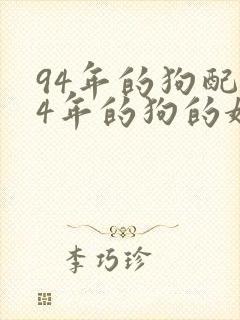 94年的狗配
4年的狗的
李巧珍